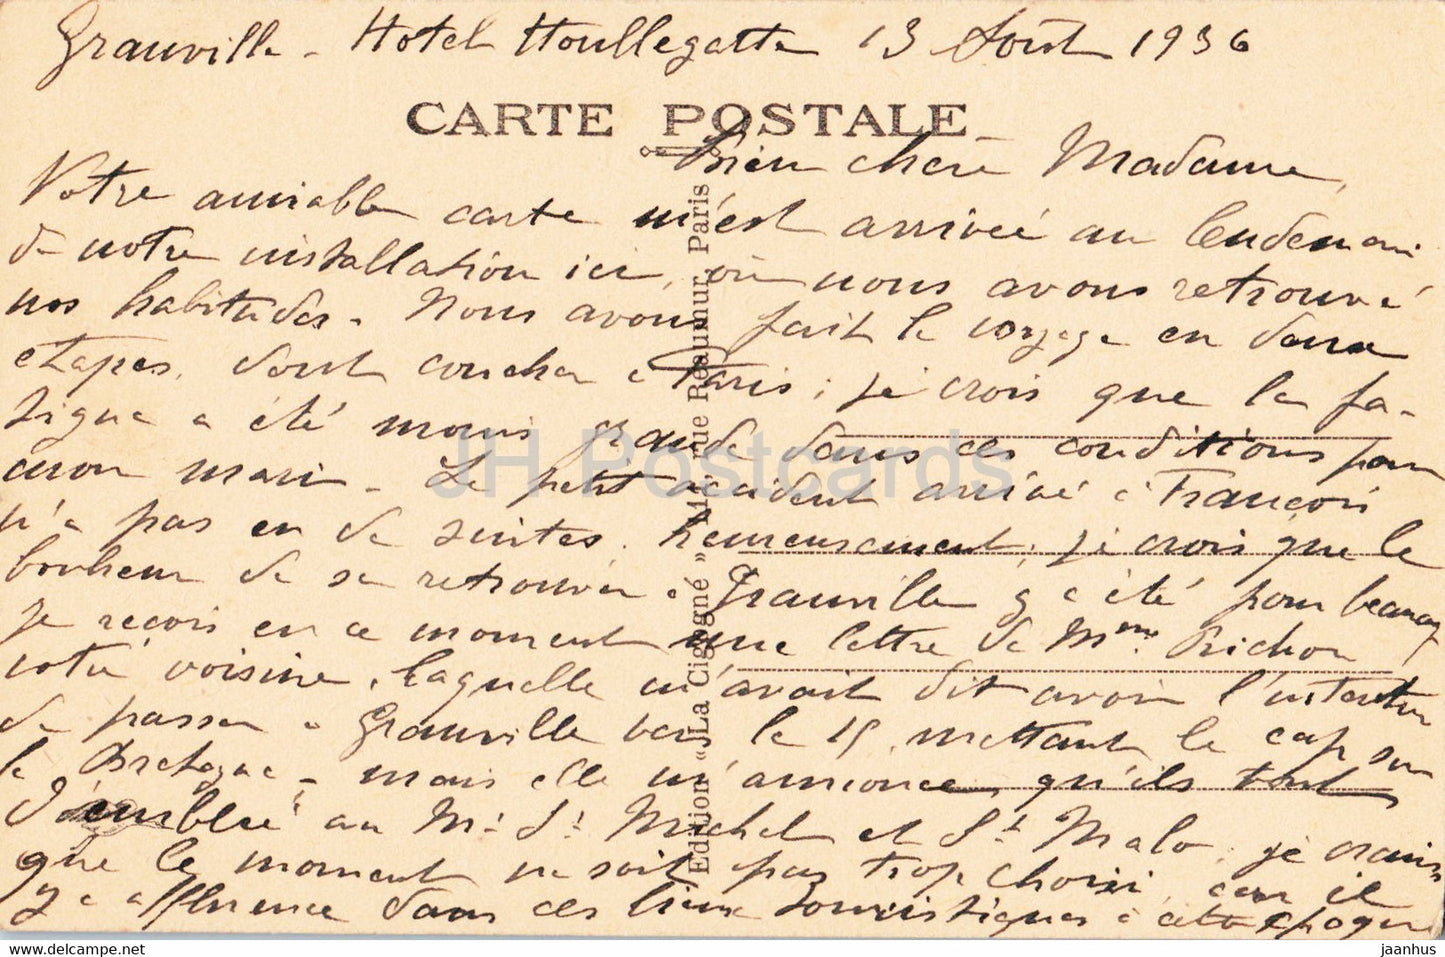 Granville - Hotel Houllegatte 13 Août 1936
CARTE POSTALE
Bien chère Madame,
Votre aimable carte m'est arrivée au lendemain
de notre installation ici, où nous avons retrouvé
nos habitudes. Nous avons fait le voyage en deux
étapes, dont coucher à Paris ; je crois que la fa-
tigue a été moins grande dans ces conditions pour
mon mari. Le petit accident arrivé à François
n'a pas eu de suites, heureusement ; je crois que le
bonheur de se retrouver à Granville y a été pour beaucoup
Je reçois en ce moment une lettre de Mme Prichon
votre voisine, laquelle m'avait dit avoir l'intention
de passer à Granville vers le 15, mettant le cap sur
la Bretagne - mais elle m'annonce qu'ils vont
d'emblée au Mt St Michel et St Malo, je crains
que le moment ne soit pas trop choisi, car il
y a affluence dans ces lieux touristiques à cette époque
Edition « La Cigogne » rue Réaumur Paris
JH Postcards
www.delcampe.net
jaanhus